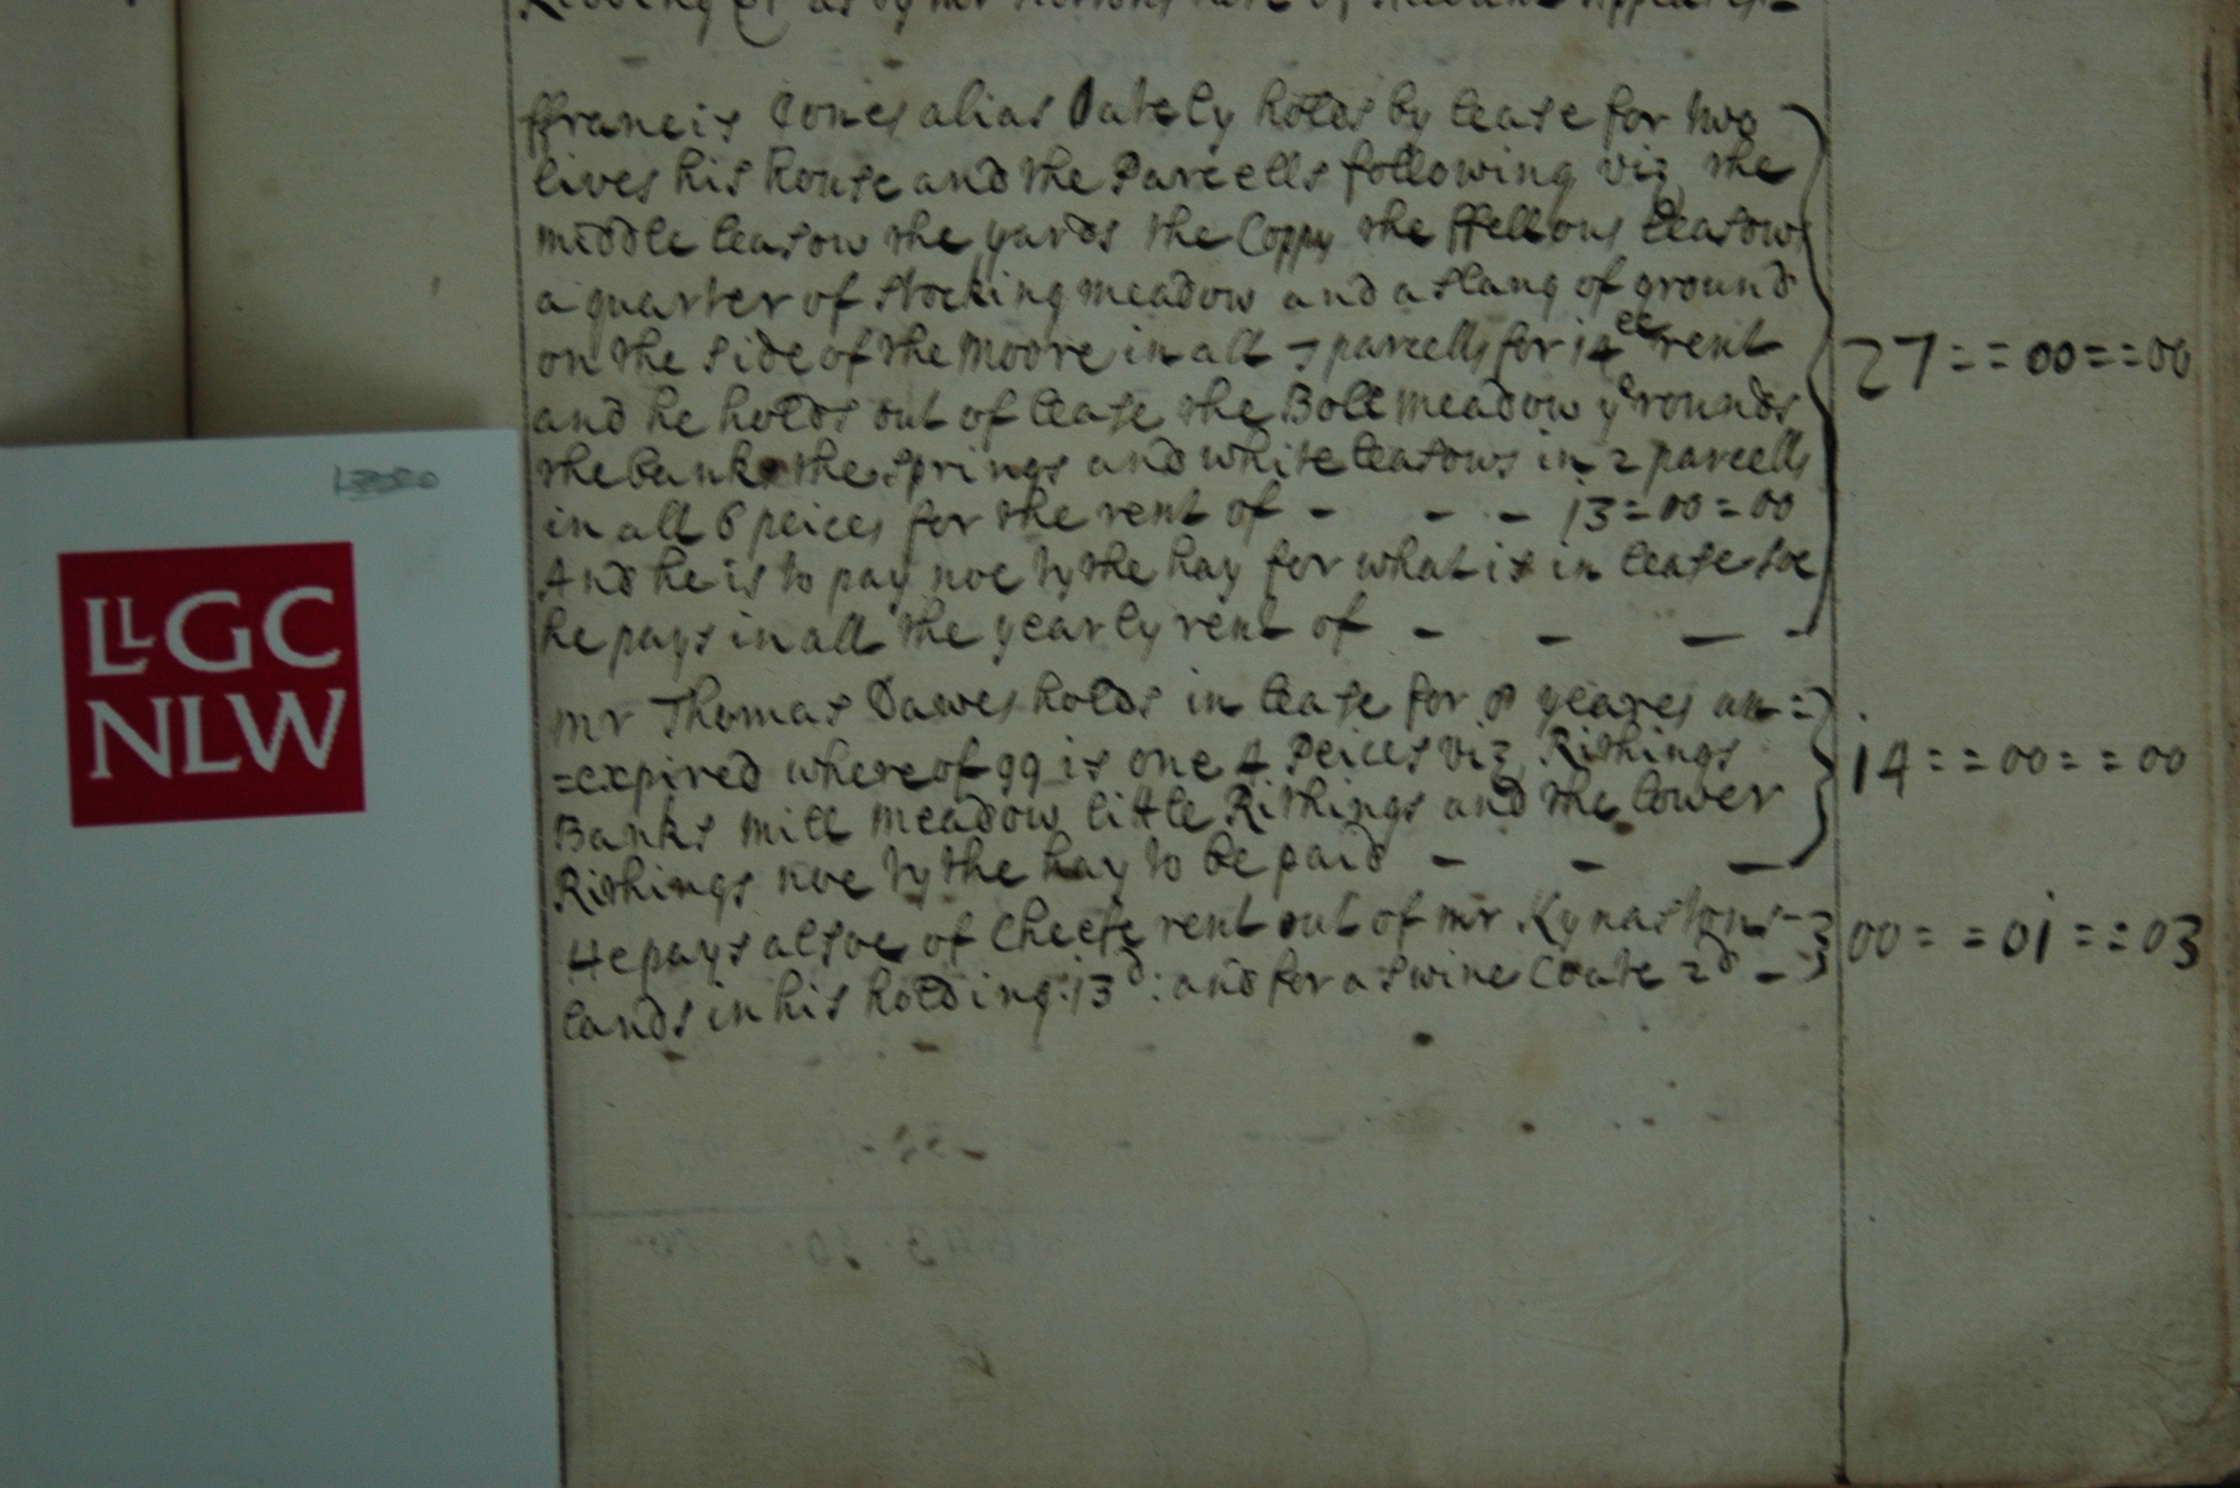 as by mr note of
ffrancis Jones alias Dately holds by lease for two
lives his house and the Parcells following viz the
middle leasow the yards the Coppy the ffellons leasows
a quarter of stocking meadow and a slang of ground
on the side of the moore in all 7 parcells for 14ll rent
and he holds out of lease the Boll meadow grounds
the bank the springs and white leasows in 2 parcells
in all 6 peices for the rent of - - - 13=00=00
And he is to pay noe tythe hay for what is in lease soe
he pays in all the yearly rent of - - - -
27==00==00
mr Thomas Dawes holds in lease for 8 yeares un=
=expired whereof 99 is one 4 Peices viz Rithings
Banks mill meadow little Rithings and the lower
Rithings noe tythe hay to be paid - - -
14==00==00
He pays alsoe of Cheefe rent out of mr Kynastons
lands in his holding :13d: and for a swine Coate 2d -
00==01==03
LLGC
NLW